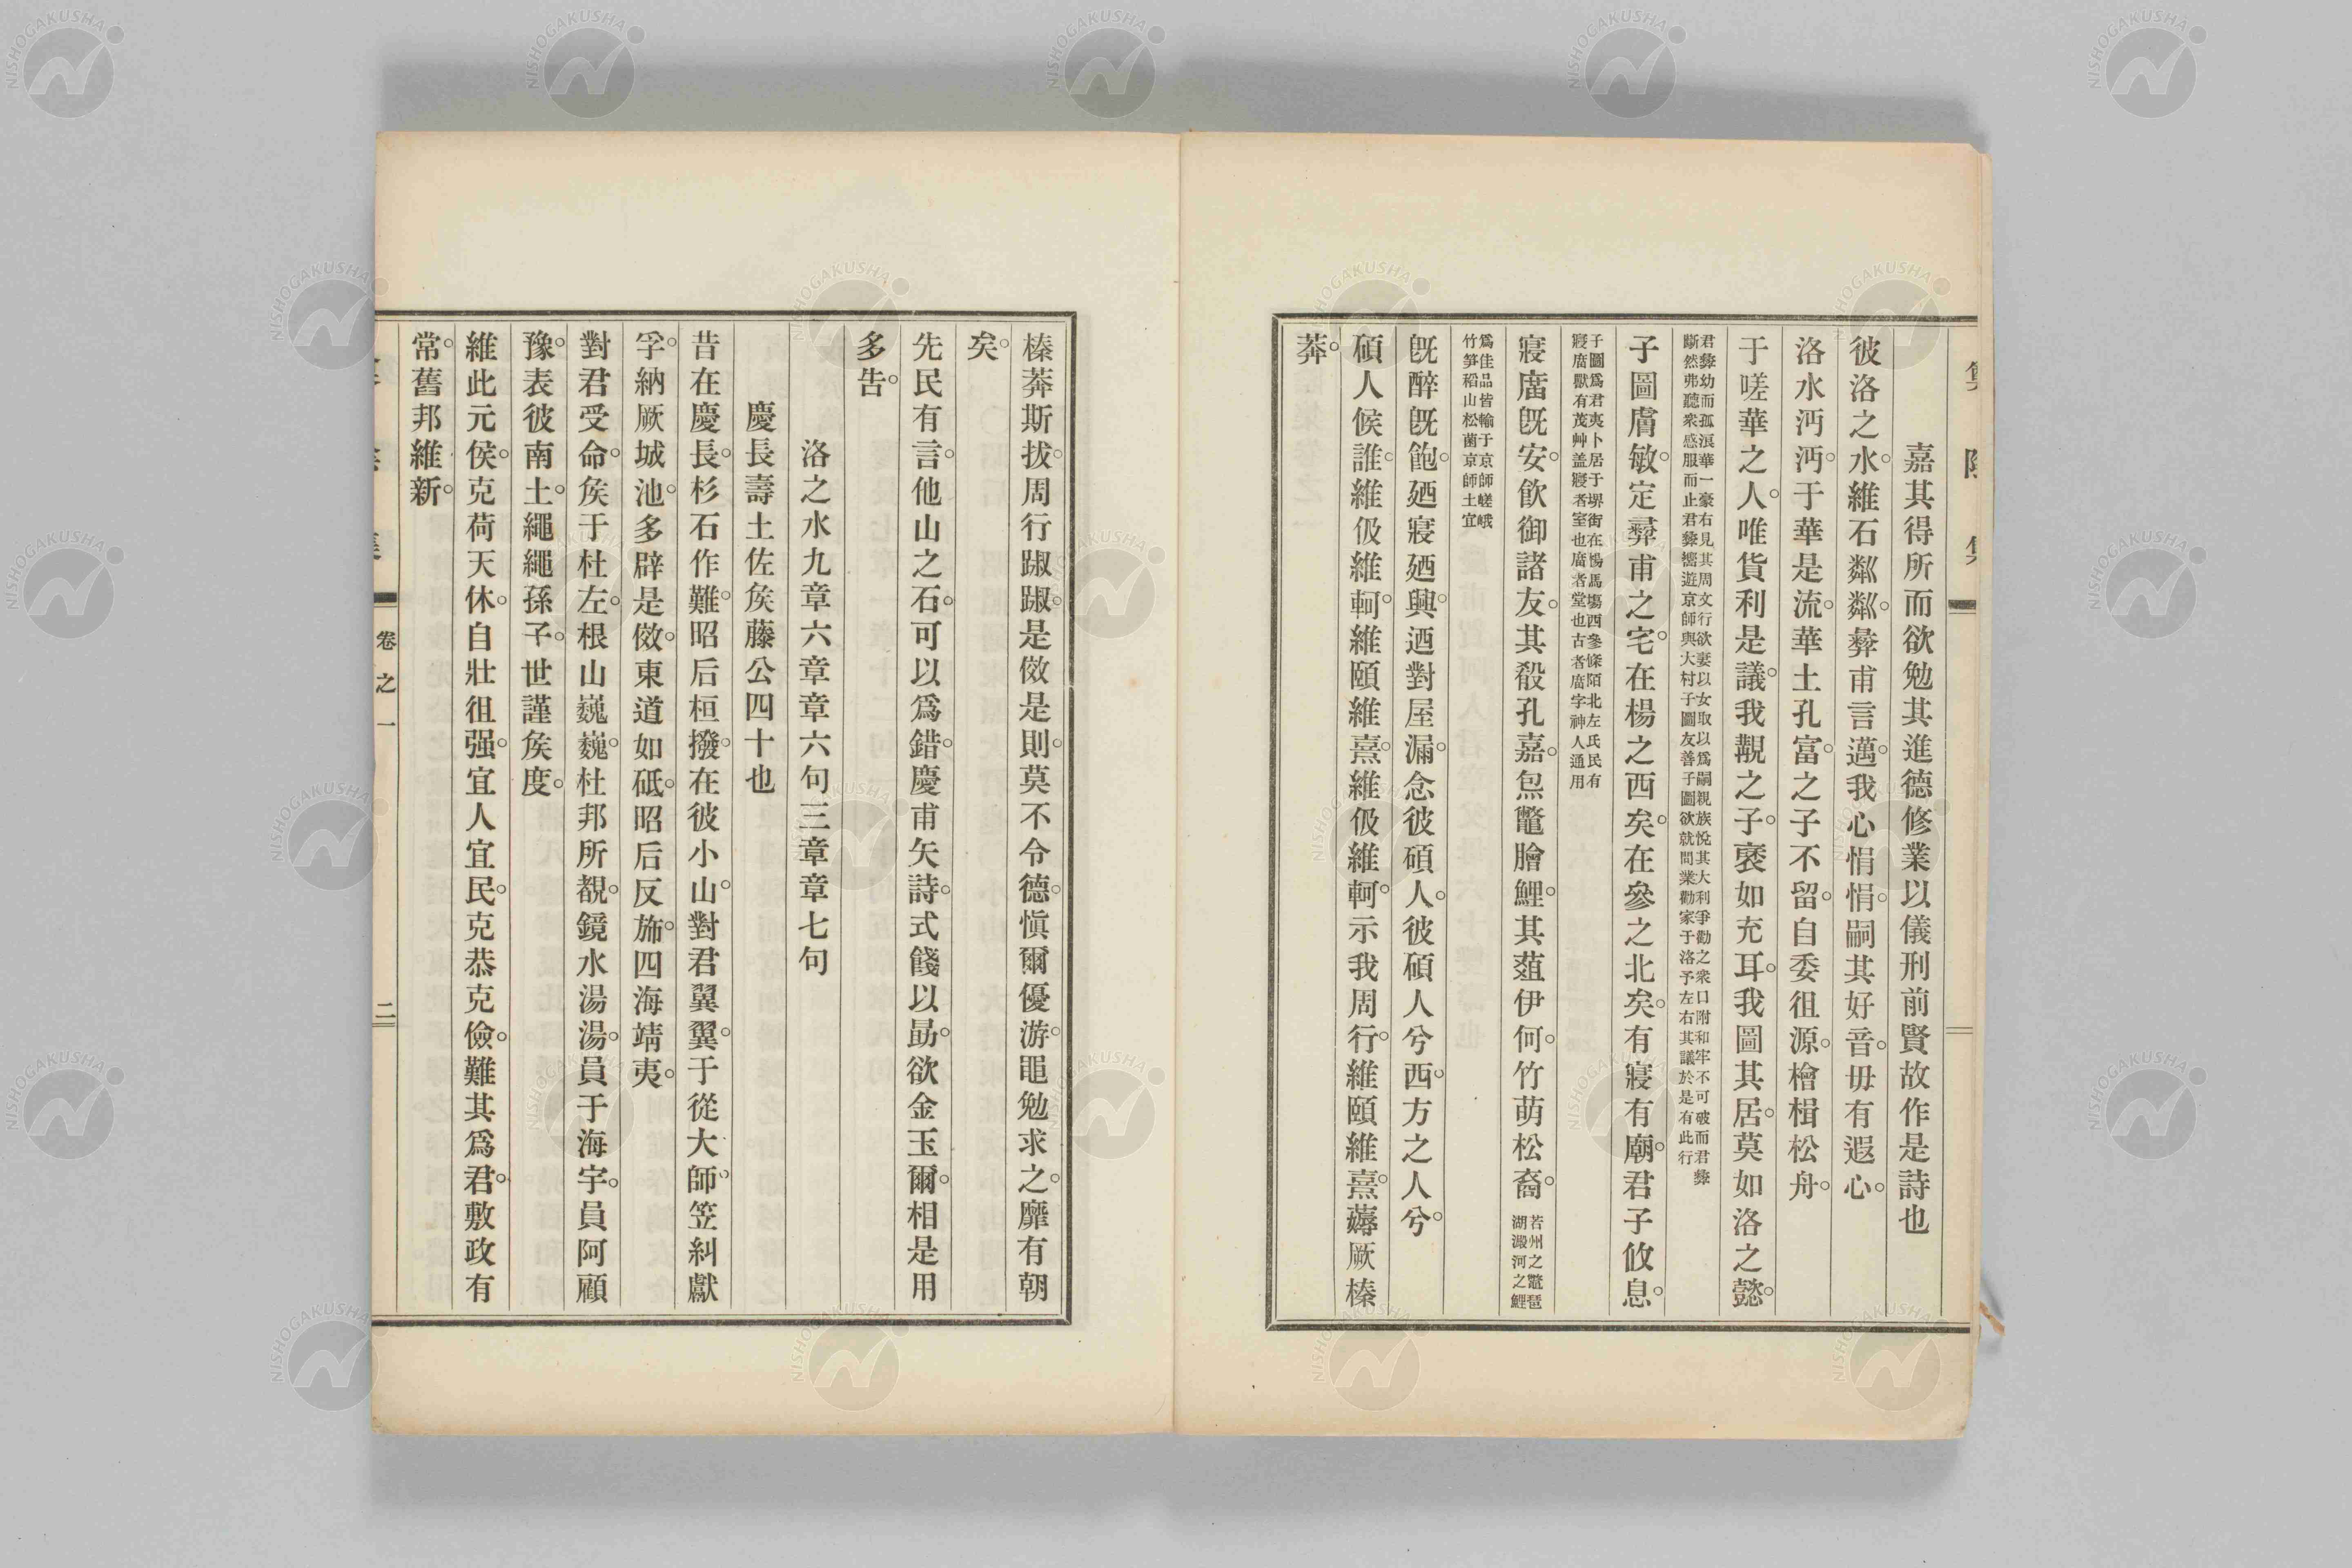 嘉其得所而欲勉其進德修業以儀刑前賢故作是詩也
彼洛之水。維石粼粼。彜甫言邁。我心悁悁。嗣其好音。毋有遐心。
洛水沔沔。于華是流。華土孔富。之子不留。自委徂源。檜楫松舟。
于嗟華之人。唯貨利是議。我覯之子。褎如充耳。我圖其居。莫如洛之懿。
君彜幼而孤溟華一豪右見其周文行欲妻以女取以爲嗣親族悅其大利爭勸之衆口附和牢不可破而君彜
斷然弗聽衆感服而止君彜嚮遊京師與大村子圖友善子圖欲就問業勸家于洛予左右其議於是有此行
子圖膚敏。定彜甫之宅。在楊之西矣。在參之北矣。有寢有廟。君子攸息。
子圖爲君夷卜居于堺街在楊馬塲西參條陌北左氏民有
寢庿獸有茂艸盖寢者室也庿者堂也古者庿字神人通用
寢庿旣安。飮御諸友。其殽孔嘉。炰鼈膾鯉。其蒩伊何。竹萌松裔。
若州之鼈琶
湖澱河之鯉
爲佳品皆輸于京師嵯峨
竹笋稻山松菌京師土宜
旣醉旣飽。廼寢廼興。迺對屋漏。念彼碩人。彼碩人兮。西方之人兮。
碩人候誰。維伋維軻。維頤維熹。維伋維軻。示我周行。維頤維熹。薅厥榛
莽。
榛莽斯拔。周行踧踧。是傚是則。莫不令德。愼爾優游。黽勉求之。靡有朝
矣。
先民有言。他山之石。可以爲錯。慶甫矢詩。式餞以勗。欲金玉爾。相是用
多告。
洛之水九章六章章六句三章章七句
慶長壽土佐矦藤公四十也
昔在慶長。杉石作難。昭后桓撥。在彼小山。對君翼翼。于從大師。笠糾獻
孚。納厥城池。多辟是傚。東道如砥。昭后反施。四海靖夷。
對君受命。矦于杜左。根山巍巍。杜邦所覩。鏡水湯湯。員于海宇。員阿顧
豫。表彼南土。繩繩孫子。世謹矦度。
維此元侯。克荷天休。自壯徂强。宜人宜民。克恭克儉。難其爲君。敷政有
常。舊邦維新。
卷之一
二